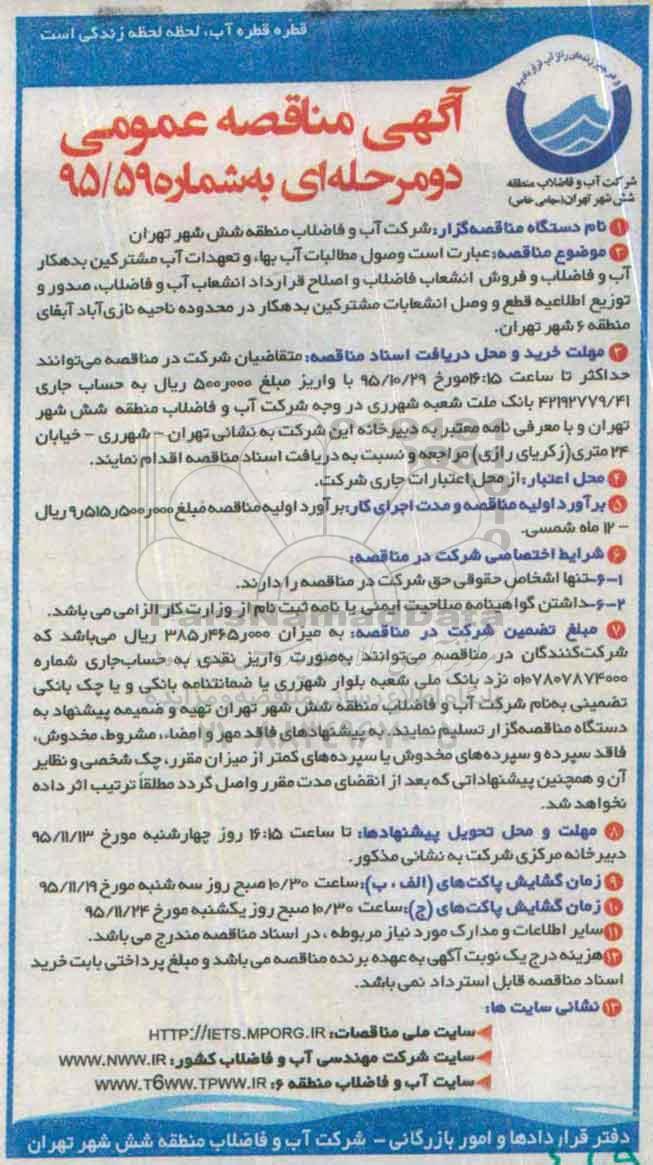 قطره قطره آب، لحظه لحظه زندگی است
شرکت آب و فاضلاب منطقه
شش شهر تهران (سهامی خاص)
آگهی مناقصه عمومی
دومرحله‌ای به‌شماره ۹۵/۵۹
۱ نام دستگاه مناقصه‌گزار: شرکت آب و فاضلاب منطقه شش شهر تهران
۲ موضوع مناقصه: عبارت است وصول مطالبات آب بهاء و تعهدات آب مشترکین بدهکار
آب و فاضلاب و فروش انشعاب فاضلاب و اصلاح قرارداد انشعاب آب و فاضلاب، صدور و
توزیع اطلاعیه قطع و وصل انشعابات مشترکین بدهکار در محدوده ناحیه نازی‌آباد آبفای
منطقه ۶ شهر تهران.
۳ مهلت خرید و محل دریافت اسناد مناقصه: متقاضیان شرکت در مناقصه می‌توانند
حداکثر تا ساعت ۱۶:۱۵ مورخ ۹۵/۱۰/۲۹ با واریز مبلغ ۵۰۰٫۰۰۰ ریال به حساب جاری
۴۲۱۹۲۷۷۹/۴۱ بانک ملت شعبه شهرری در وجه شرکت آب و فاضلاب منطقه شش شهر
تهران و با معرفی نامه معتبر به دبیرخانه این شرکت به نشانی تهران – شهرری – خیابان
۲۴ متری (زکریای رازی) مراجعه و نسبت به دریافت اسناد مناقصه اقدام نمایند.
۴ محل اعتبار: از محل اعتبارات جاری شرکت.
۵ برآورد اولیه مناقصه و مدت اجرای کار: برآورد اولیه مناقصه مبلغ ۹٫۵۱۵٫۵۰۰٫۰۰۰ ریال
– ۱۲ ماه شمسی.
۶ شرایط اختصاصی شرکت در مناقصه:
۶-۱-تنها اشخاص حقوقی حق شرکت در مناقصه را دارند.
۶-۲-داشتن گواهینامه صلاحیت ایمنی یا نامه ثبت نام از وزارت کار الزامی می باشد.
ParsNamadData
۷ مبلغ تضمین شرکت در مناقصه: به میزان ۳۸۵٫۴۶۵٫۰۰۰ ریال می‌باشد که
شرکت‌کنندگان در مناقصه می‌توانند به‌صورت واریز نقدی به حساب‌جاری شماره
۰۱۰۷۸۰۷۸۷۴۰۰۰ نزد بانک ملی شعبه بلوار شهرری یا ضمانتنامه بانکی و یا چک بانکی
تضمینی به‌نام شرکت آب و فاضلاب منطقه شش شهر تهران تهیه و ضمیمه پیشنهاد به
دستگاه مناقصه‌گزار تسلیم نمایند. به پیشنهادهای فاقد مهر و امضاء، مشروط، مخدوش،
فاقد سپرده و سپرده‌های مخدوش یا سپرده‌های کمتر از میزان مقرر، چک شخصی و نظایر
آن و همچنین پیشنهاداتی که بعد از انقضای مدت مقرر واصل گردد مطلقاً ترتیب اثر داده
نخواهد شد.
۸ مهلت و محل تحویل پیشنهادها: تا ساعت ۱۶:۱۵ روز چهارشنبه مورخ ۹۵/۱۱/۱۳
دبیرخانه مرکزی شرکت به نشانی مذکور.
۹ زمان گشایش پاکت‌های (الف ، ب): ساعت ۱۰/۳۰ صبح روز سه شنبه مورخ ۹۵/۱۱/۱۹
۱۰ زمان گشایش پاکت‌های (ج): ساعت ۱۰/۳۰ صبح روز یکشنبه مورخ ۹۵/۱۱/۲۴
۱۱ سایر اطلاعات و مدارک مورد نیاز مربوطه ، در اسناد مناقصه مندرج می باشد.
۱۲ هزینه درج یک نوبت آگهی به عهده برنده مناقصه می باشد و مبلغ پرداختی بابت خرید
اسناد مناقصه قابل استرداد نمی باشد.
۱۳ نشانی سایت ها:
سایت ملی مناقصات: HTTP://IETS.MPORG.IR
سایت شرکت مهندسی آب و فاضلاب کشور: WWW.NWW.IR
سایت آب و فاضلاب منطقه ۶: WWW.T6WW.TPWW.IR
دفتر قراردادها و امور بازرگانی – شرکت آب و فاضلاب منطقه شش شهر تهران